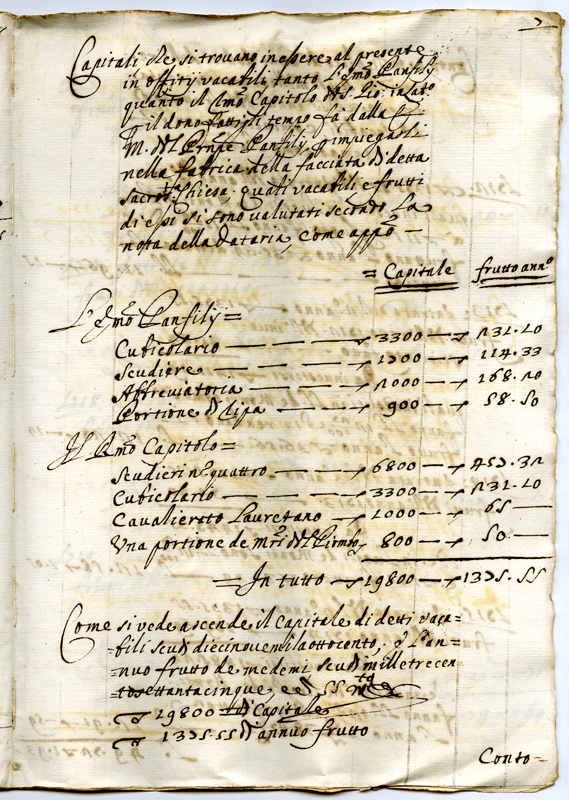 7
Capitali che si trovano in essere al presente
in offitij vacabili tanto l'Em͂o Panfilij
quanto il Rm͂o Capitolo di S. Gio: in Lat.º
p il dono fattogli tempo fà dalla
M. del Prn͂pe Panfilij p impiegarli
nella fabrica della facciata di detta
Sacros.ta Chiesa, quali vacabili e frutti
di essi si sono valutati secondo la
nota della Dataria, come app.º —
= Capitale frutto ann.º
L'Em͂o Panfilij =
Cubicolario — 3300 — 231.10
Scudiere — 1700 — 114.33
Abbreviatoria — 2000 — 168.20
Portione di Ripa — 900 — 58.50
Il Rm͂o Capitolo =
Scudieri n.º quattro — 6800 — 457.32
Cubicolario — 3300 — 231.10
Cavalierato Lauretano — 1000 — 65 —
Una portione de — 800 — 50 —
= In tutto — 19800 — 1375.55
Come si vede ascende il Capitale di detti vaca=
=bili scudi diecinuemilaottocento, e l'an=
=nuo frutto de medemi scudi milletrecen=
=tosettantacinque, e 55 m.ta
19800 di Capitale
1375.55 di annuo frutto
Conto =